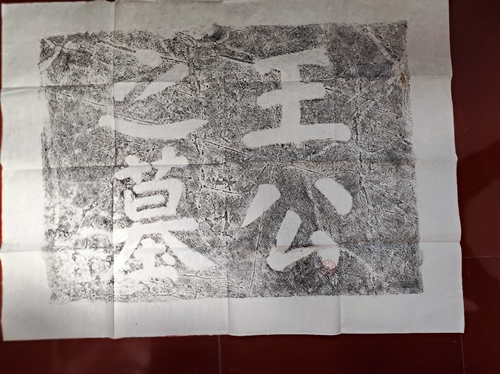 王公
之墓